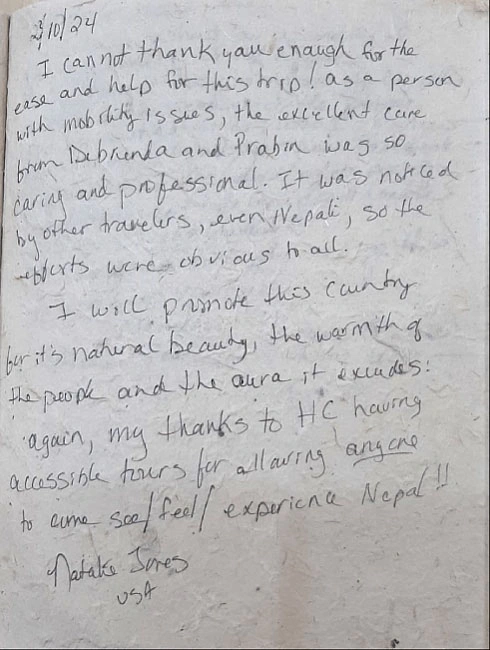 2/10/24
I cannot thank you enough for the
ease and help for this trip! as a person
with mobility issues, the excellent care
from Debrenda and Prabin was so
caring and professional. It was noticed
by other travelers, even Nepali, so the
efforts were obvious to all.
I will promote this country
for it's natural beauty, the warmth of
the people and the aura it exudes:
again, my thanks to HC having
accessible tours for allowing anyone
to come see/feel/experience Nepal!!
Jones
USA